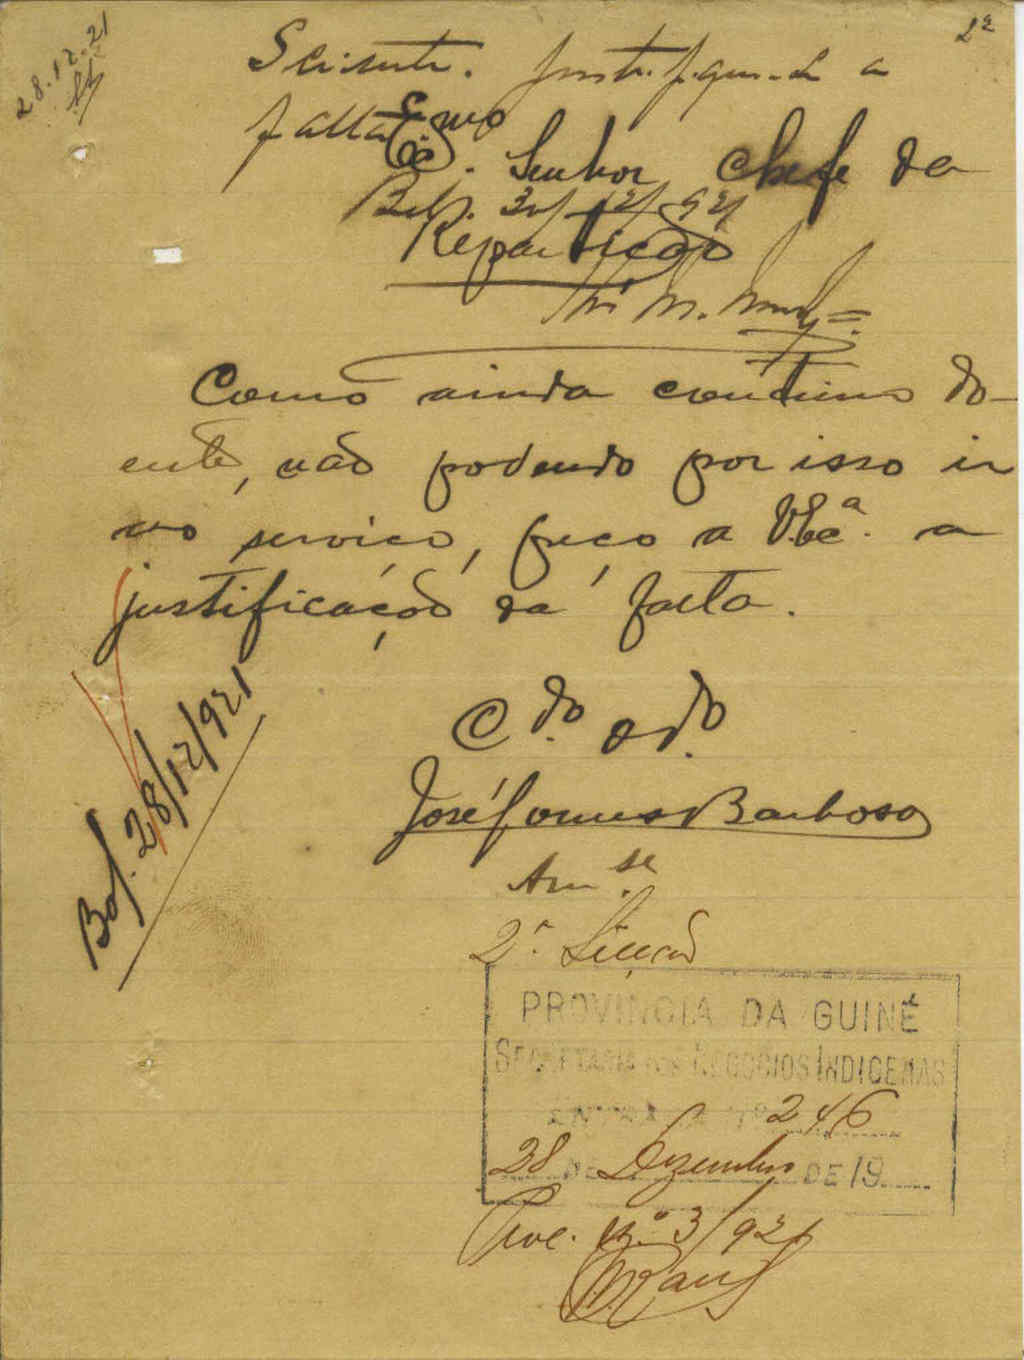 28.12.21
2ª
Sciente. Justifique-se a
falta
Exmo
Senhor Chefe da
Bol. 30/12/921
Repartição
Como ainda continuo do-
ente, não podendo por isso ir
ao serviço, peço a V.Exª. a
justificação da falta.
Bol. 28/12/921
C.do o d.o
José Gomes Barbosa
Am.se
2ª. Secção
PROVINCIA DA GUINÉ
SECRETARIA DOS NEGOCIOS INDIGENAS
ENTRADA Nº 246
28 DE Dezembro DE 19
Proc. n.º 3/921